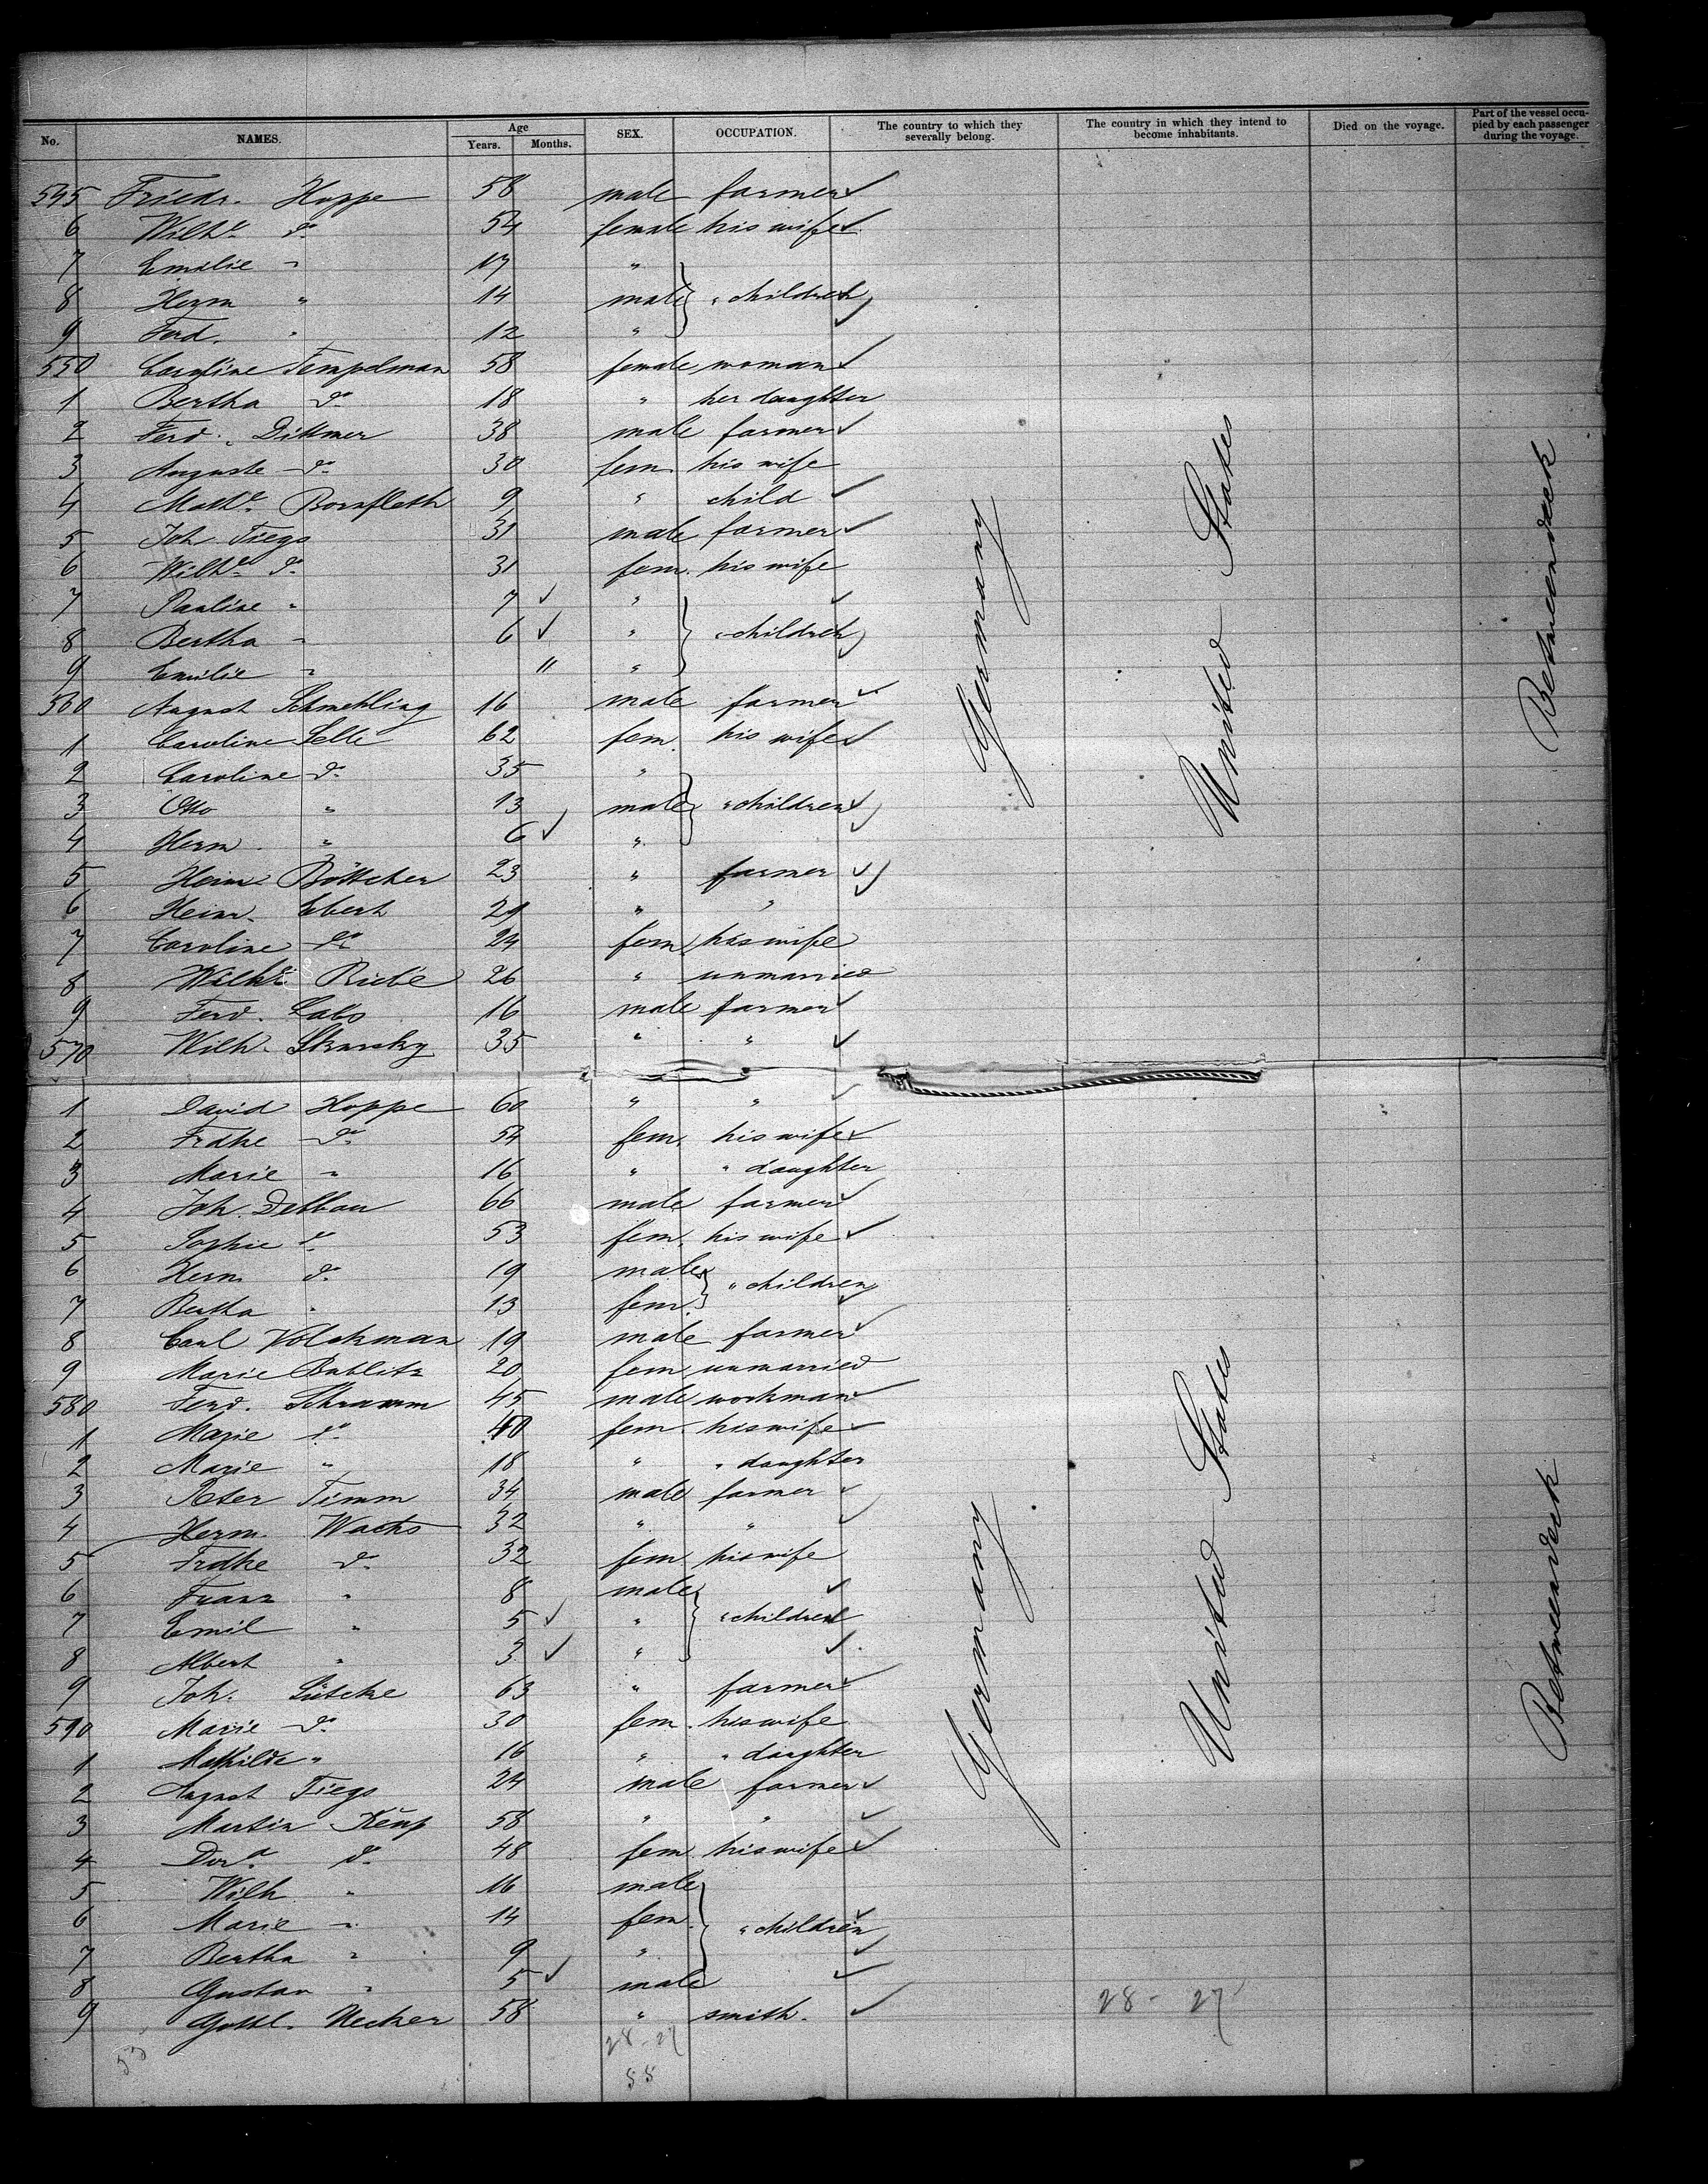 No. NAMES. Age Years. Months. SEX. OCCUPATION. The country to which they severally belong. The country in which they intend to become inhabitants. Died on the voyage. Part of the vessel occupied by each passenger during the voyage.
545 Friedr. Hoppe 58 male farmer ✓
6 Wilhe do 54 female his wife ✓
7 Emilie " 17 "
8 Herm " 14 male } " children
9 Ferd. " 12 "
550 Caroline Tempelman 58 female woman ✓
1 Bertha do 18 " her daughter
2 Ferd. Dittmer 38 male farmer ✓
3 Auguste do 30 fem. his wife
4 Mathe Bornfleth 9 " child ✓
5 Joh Tiegs 31 male farmer ✓
6 Wilhe do 31 fem. his wife
7 Pauline " 7 ✓ " ✓
8 Bertha " 6 ✓ " } " children
9 Emilie " " "
560 August Schmehling 16 male farmer ✓
1 Caroline Selle 62 fem. his wife ✓
2 Caroline do 35 "
3 Otto " 13 male } " children ✓
4 Herm " 6 ✓ " ✓
5 Heinr. Böttcher 23 " farmer ✓
6 Heinr. Ebert 29 " "
7 Caroline do 24 fem his wife
8 Wilhe Riebe 26 " unmarried
9 Ferd. Labs 16 male farmer ✓
570 Wilh. 35 " " ✓
1 David Hoppe 60 " " ✓
2 Frdke do 54 fem. his wife ✓
3 Marie " 16 " " daughter
4 Joh. Debbau 66 male farmer ✓
5 Sophie do 53 fem. his wife ✓
6 Herm do 19 male
7 Bertha " 13 fem. } " children
8 Carl Volckman 19 male farmer ✓
9 Marie Bublitz 20 fem unmarried
580 Ferd. Schramm 45 male workman ✓
1 Marie do 40 fem. his wife ✓
2 Marie " 18 " " daughter
3 Peter Timm 34 male farmer ✓
4 Herm. Wachs 32 " " ✓
5 Frdke do 32 fem his wife
6 Franz " 8 male ✓
7 Emil " 5 ✓ " } " children
8 Albert " 3 ✓ " ✓
9 Joh. Lütcke 63 " farmer ✓
590 Marie do 30 fem. his wife
1 Mathilde " 16 " " daughter
2 August Tiegs 24 male farmer ✓
3 Martin Kemp 58 " " ✓
4 Dora do 48 fem. his wife ✓
5 Wilh " 16 male
6 Marie " 14 fem. } " children ✓
7 Bertha " 9 " ✓
8 Gustav " 5 ✓ male ✓
9 Gottl. Necker 58 " smith. ✓
Germany
United States
Betweendeck
Germany
United States
Betweendeck
28 - 27
28 - 27
55